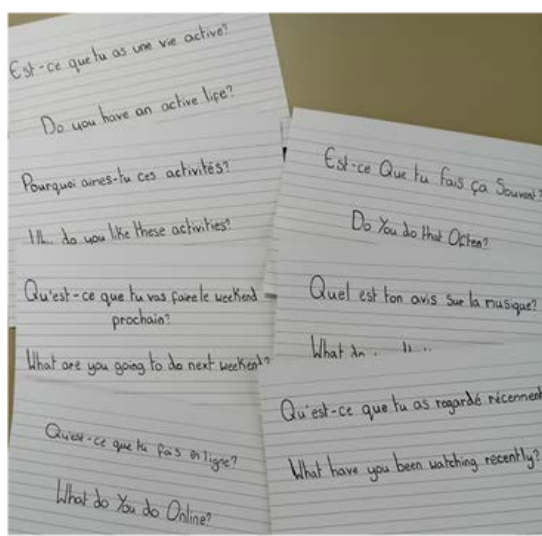 Est-ce que tu as une vie active?
Do you have an active life?
Pourquoi aimes-tu ces activités?
do you like these activities?
Qu'est-ce que tu vas faire le weekend
prochain?
What are you going to do next weekend?
Qu'est-ce que tu fais en ligne?
What do You do Online?
Est-ce Que tu fais ça Souvent?
Do You do that Often?
Quel est ton avis Sur la musique?
What
Qu'est-ce que tu as regardé récemment
What have you been watching recently?